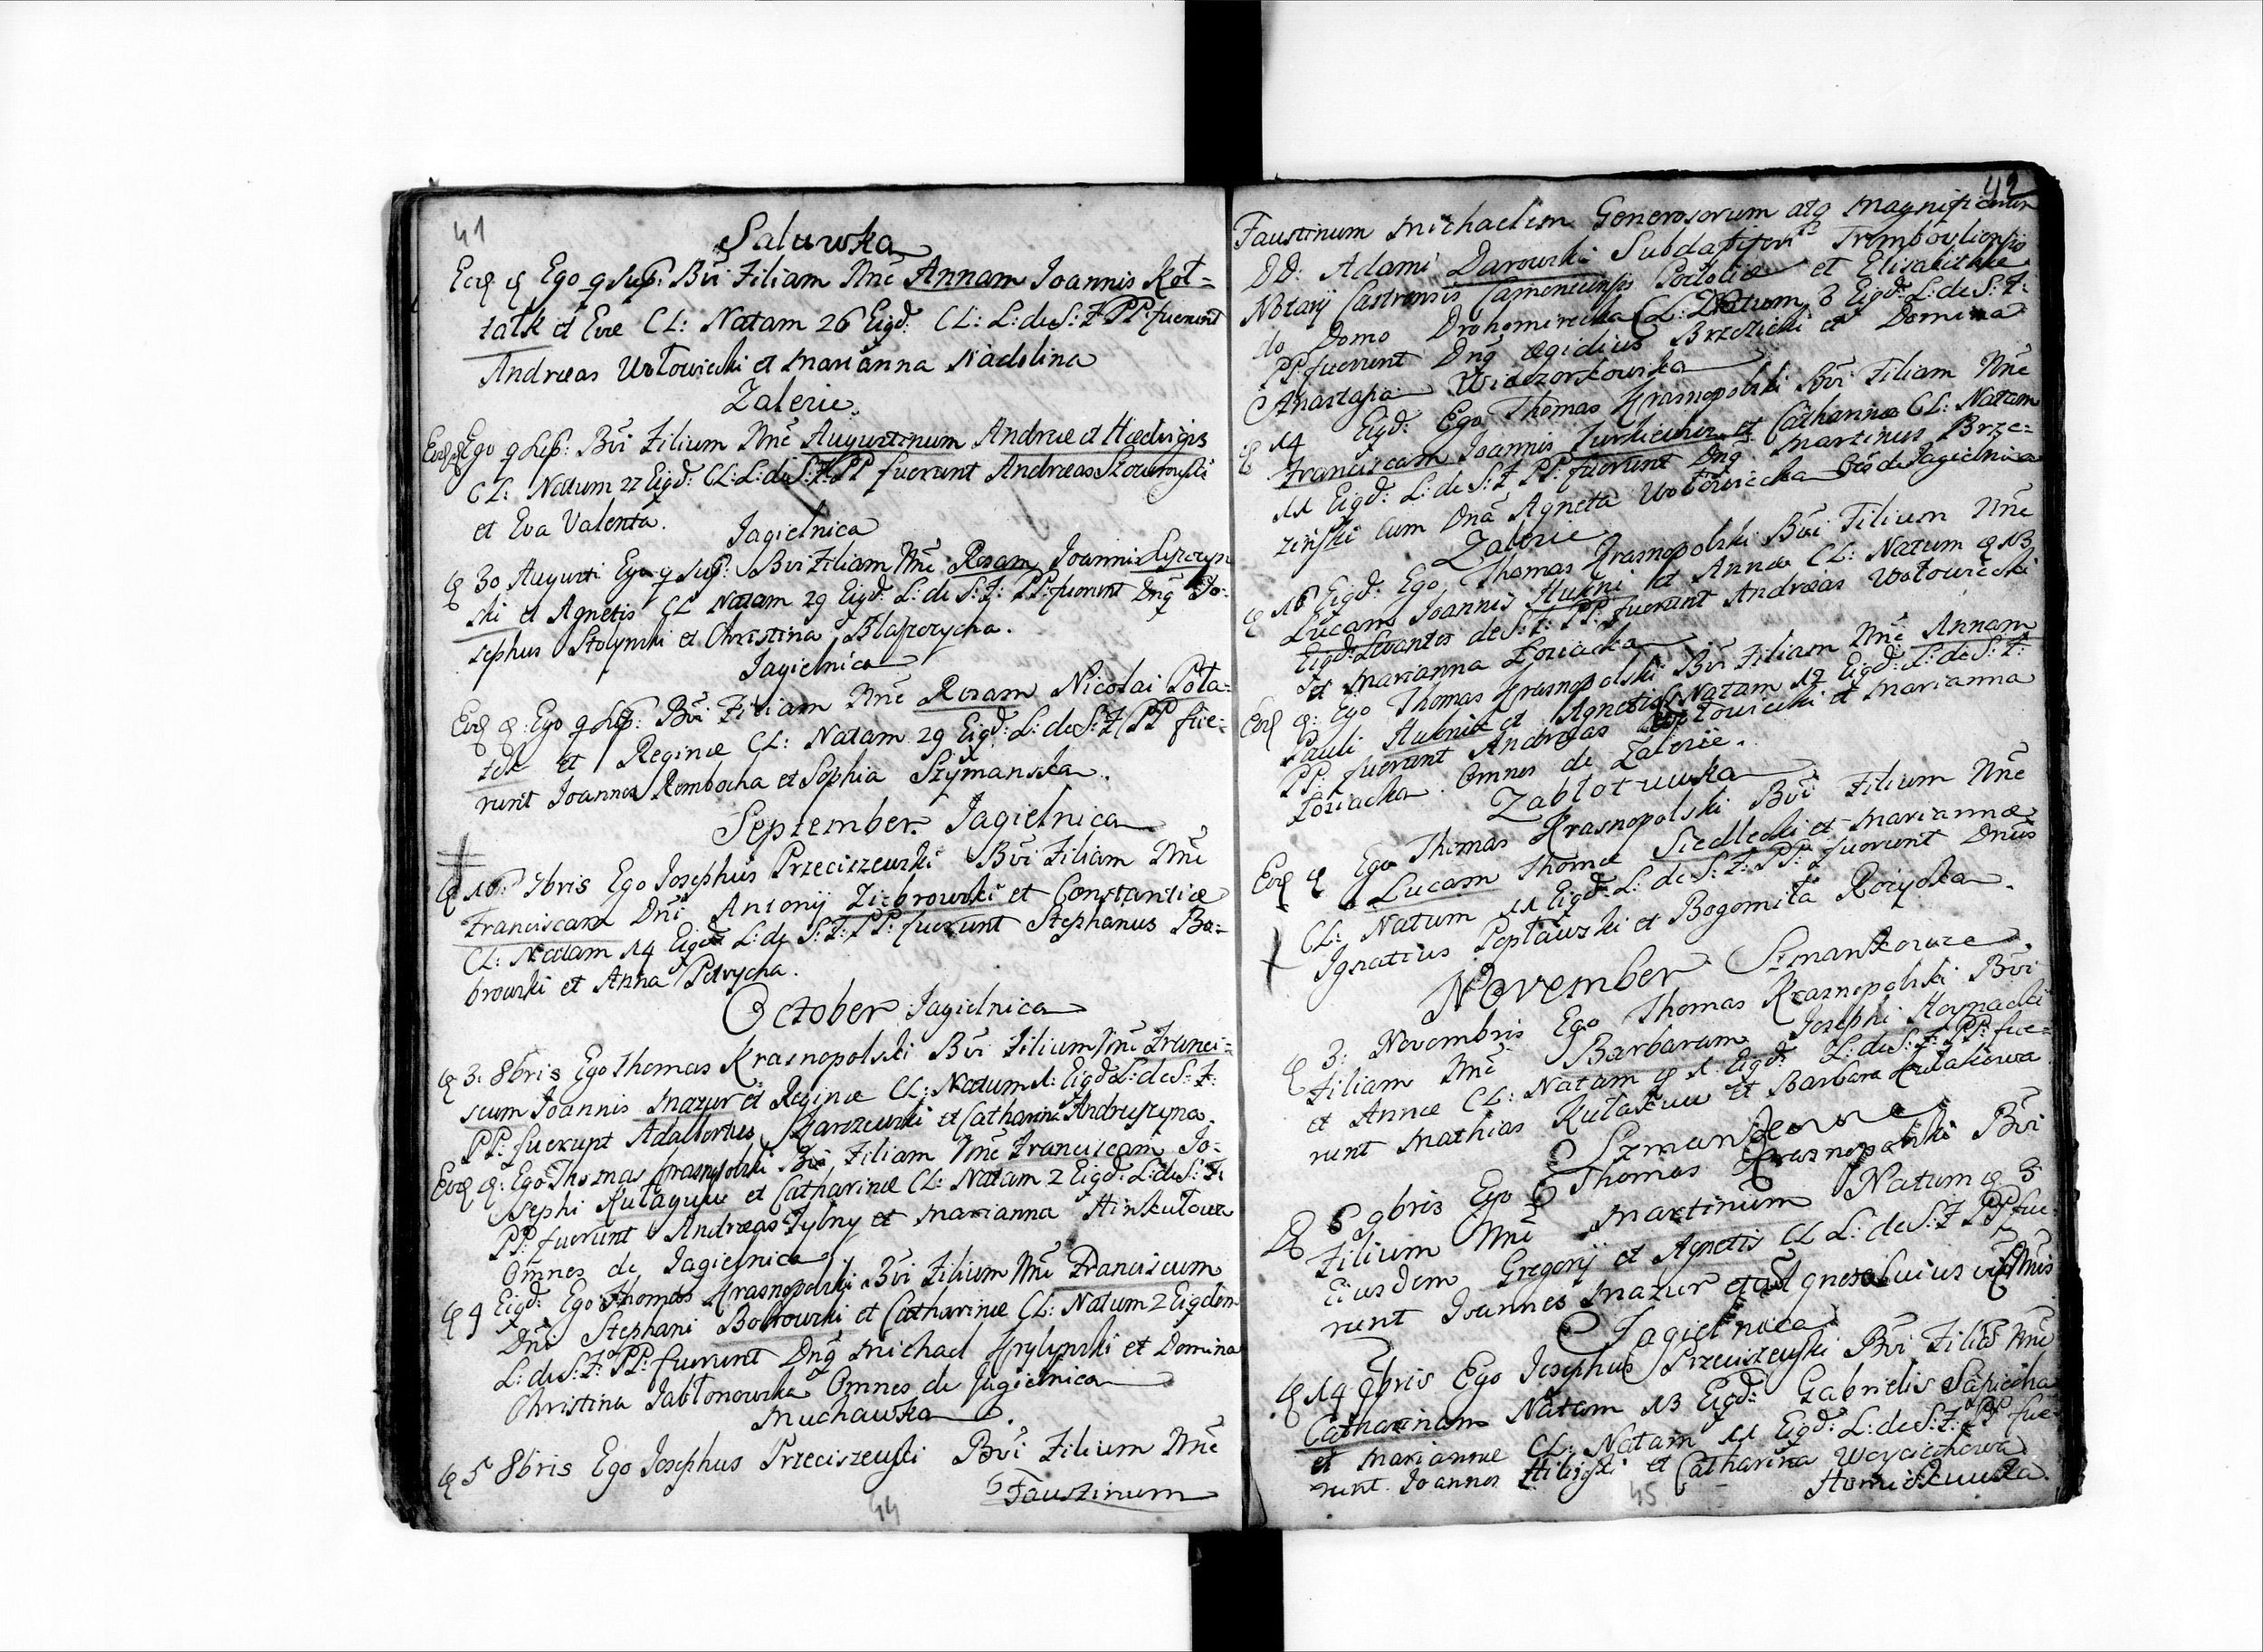 41
Saluwka
Eod d Ego q sup: Bvi Filiam Nne Annam Joannis Kot-
talk et Evæ CL: Natam 26 Eigd: CL: L: de S: F PP: fuerunt
Andreas Wołowiecki et Marianna
Zalesie
Eod d Ego q sup: Bvi Filium Nne Augustinum Andreæ et Hedvigis
CL: Natum 27 Eigd: CL: L: de S: F: PP fuerunt Andreas
et Eva Valenta.
Jagielnica
d 30 Augusti Ego q sup: Bvi Filiam Nne Rosam Joannis
ski et Agnetis CL Natam 29 Eigd: L: de S: F: PP: fuerunt Dnq Jo-
sephus Stolynski et Christina
Jagielnica
Eod d: Ego q sup: Bvi Filiam Nne Rosam Nicolai Pota-
tek et Reginæ CL: Natam 29 Eigd: L: de S: F PP fue-
runt Joannes Rembocha et Sophia Szymanska.
September Jagielnica
d 16: 7bris Ego Josephus Przeciszewski Bvi Filiam Nne
Franciscam Dni Antonij Ziebrowski et Constantiæ
CL: Natam 14 Eigd: L: de S: F: PP: fuerunt Stephanus Bo-
browski et Anna Petrycha.
October Jagielnica
d 3: 8bris Ego Thomas Krasnopolski Bvi Filium Nne Franci-
scum Joannis Mazur et Reginæ CL: Natum 1: Eigd L: de S: F:
PP: fuerunt Adalbertus Skarzewski et Catharina Andruszyna
Eod d: Ego Thomas Krasnopolski Bvi Filiam Nne Franciscam Jo-
sephi et Catharinæ CL: Natam 2 Eigd: L: de S: F:
PP: fuerunt Andreas Tylny et Marianna Hinkulowa
Omnes de Jagielnica
d 4 Eigd: Ego Thomas Krasnopolski Bvi Filium Nne Franciscum
Dni Stephani Bobrowski et Catharinæ CL: Natum 2 Eigdem
L: de S: F: PP: fuerunt Dnq Michael et Domina
Christina Jabłonowska Omnes de Jagielnica
Muchawka
d 5 8bris Ego Josephus Przeciszewski Bvi Filium Nne
Faustinum
44
42
Faustinum Michaelem Generosorum atq Magnificorum
DD: Adami Darowski Subdapiferi Trembovliensis
Notarij Castrensis Camenecensis Podoliæ et Elisabethæ
de Domo Drohomirecka CL: Natum 3 Eigd: L: de S: F:
PP: fuerunt Dnq Ægidius Brzezicki et Domina
Anastasia Wieczorkowska
d 14 Eigd: Ego Thomas Krasnopolski Bvi Filiam Nne
Franciscam Joannis Jurkiewicz et Catharinæ CL: Natam
11 Eigd: L: de S: F PP: fuerunt Dnq Martinus Brze-
ziński cum Dna Agneta Wołowiecka Oes de Jagielnica
Zalesie
d 16 Eigd: Ego Thomas Krasnopolski Bvi Filium Nne
Lucam Joannis Hukni et Annæ CL: Natum d 13
Eigd: Levantes de S: F: PP: fuerunt Andreas Wołowiecki
et Marianna Łoziacka
Eod d: Ego Thomas Krasnopolski Bvi Filiam Nne Annam
Pauli et Agnetis Natam 12 Eigd: L: de S: F:
PP: fuerunt Andreas Wołowiecki et Marianna
Łoziacka. Omnes de Zalesie.
Zabłotuwka
Eod d Ego Thomas Krasnopolski Bvi Filium Nne
Lucam Thomæ Siedlecki et Mariannæ
CL: Natum 11 Eigd: L: de S: F: PP: fuerunt Dnus
Ignatius Popławski et Bogomiła Rozycka.
November Szmankowce
d 3: Novembris Ego Thomas Krasnopolski Bvi
Filiam Nne Barbaram Josephi Haynacki
et Annæ CL: Natam d 1 Eigd: L: de S: F: PP: fue-
runt Mathias et Barbara Kułakowa
Szmankowce
D 6 9bris Ego Thomas Krasnopolski Bvi
Filium Nne Martinum Natum d 3
Eiusdem Gregorij et Agnetis CL L: de S: F PP fue-
runt Joannes Mazur et Agnes
Jagielnica
d 14 9bris Ego Josephus Przeciszewski Bvi Nne
Catharinam Natam 13 Eigd: Gabrielis Sapiecha
et Mariannæ CL: Natam 11 Eigd: L: de S: F: PP fue-
runt Joannes et Catharina Woyciechowa
45